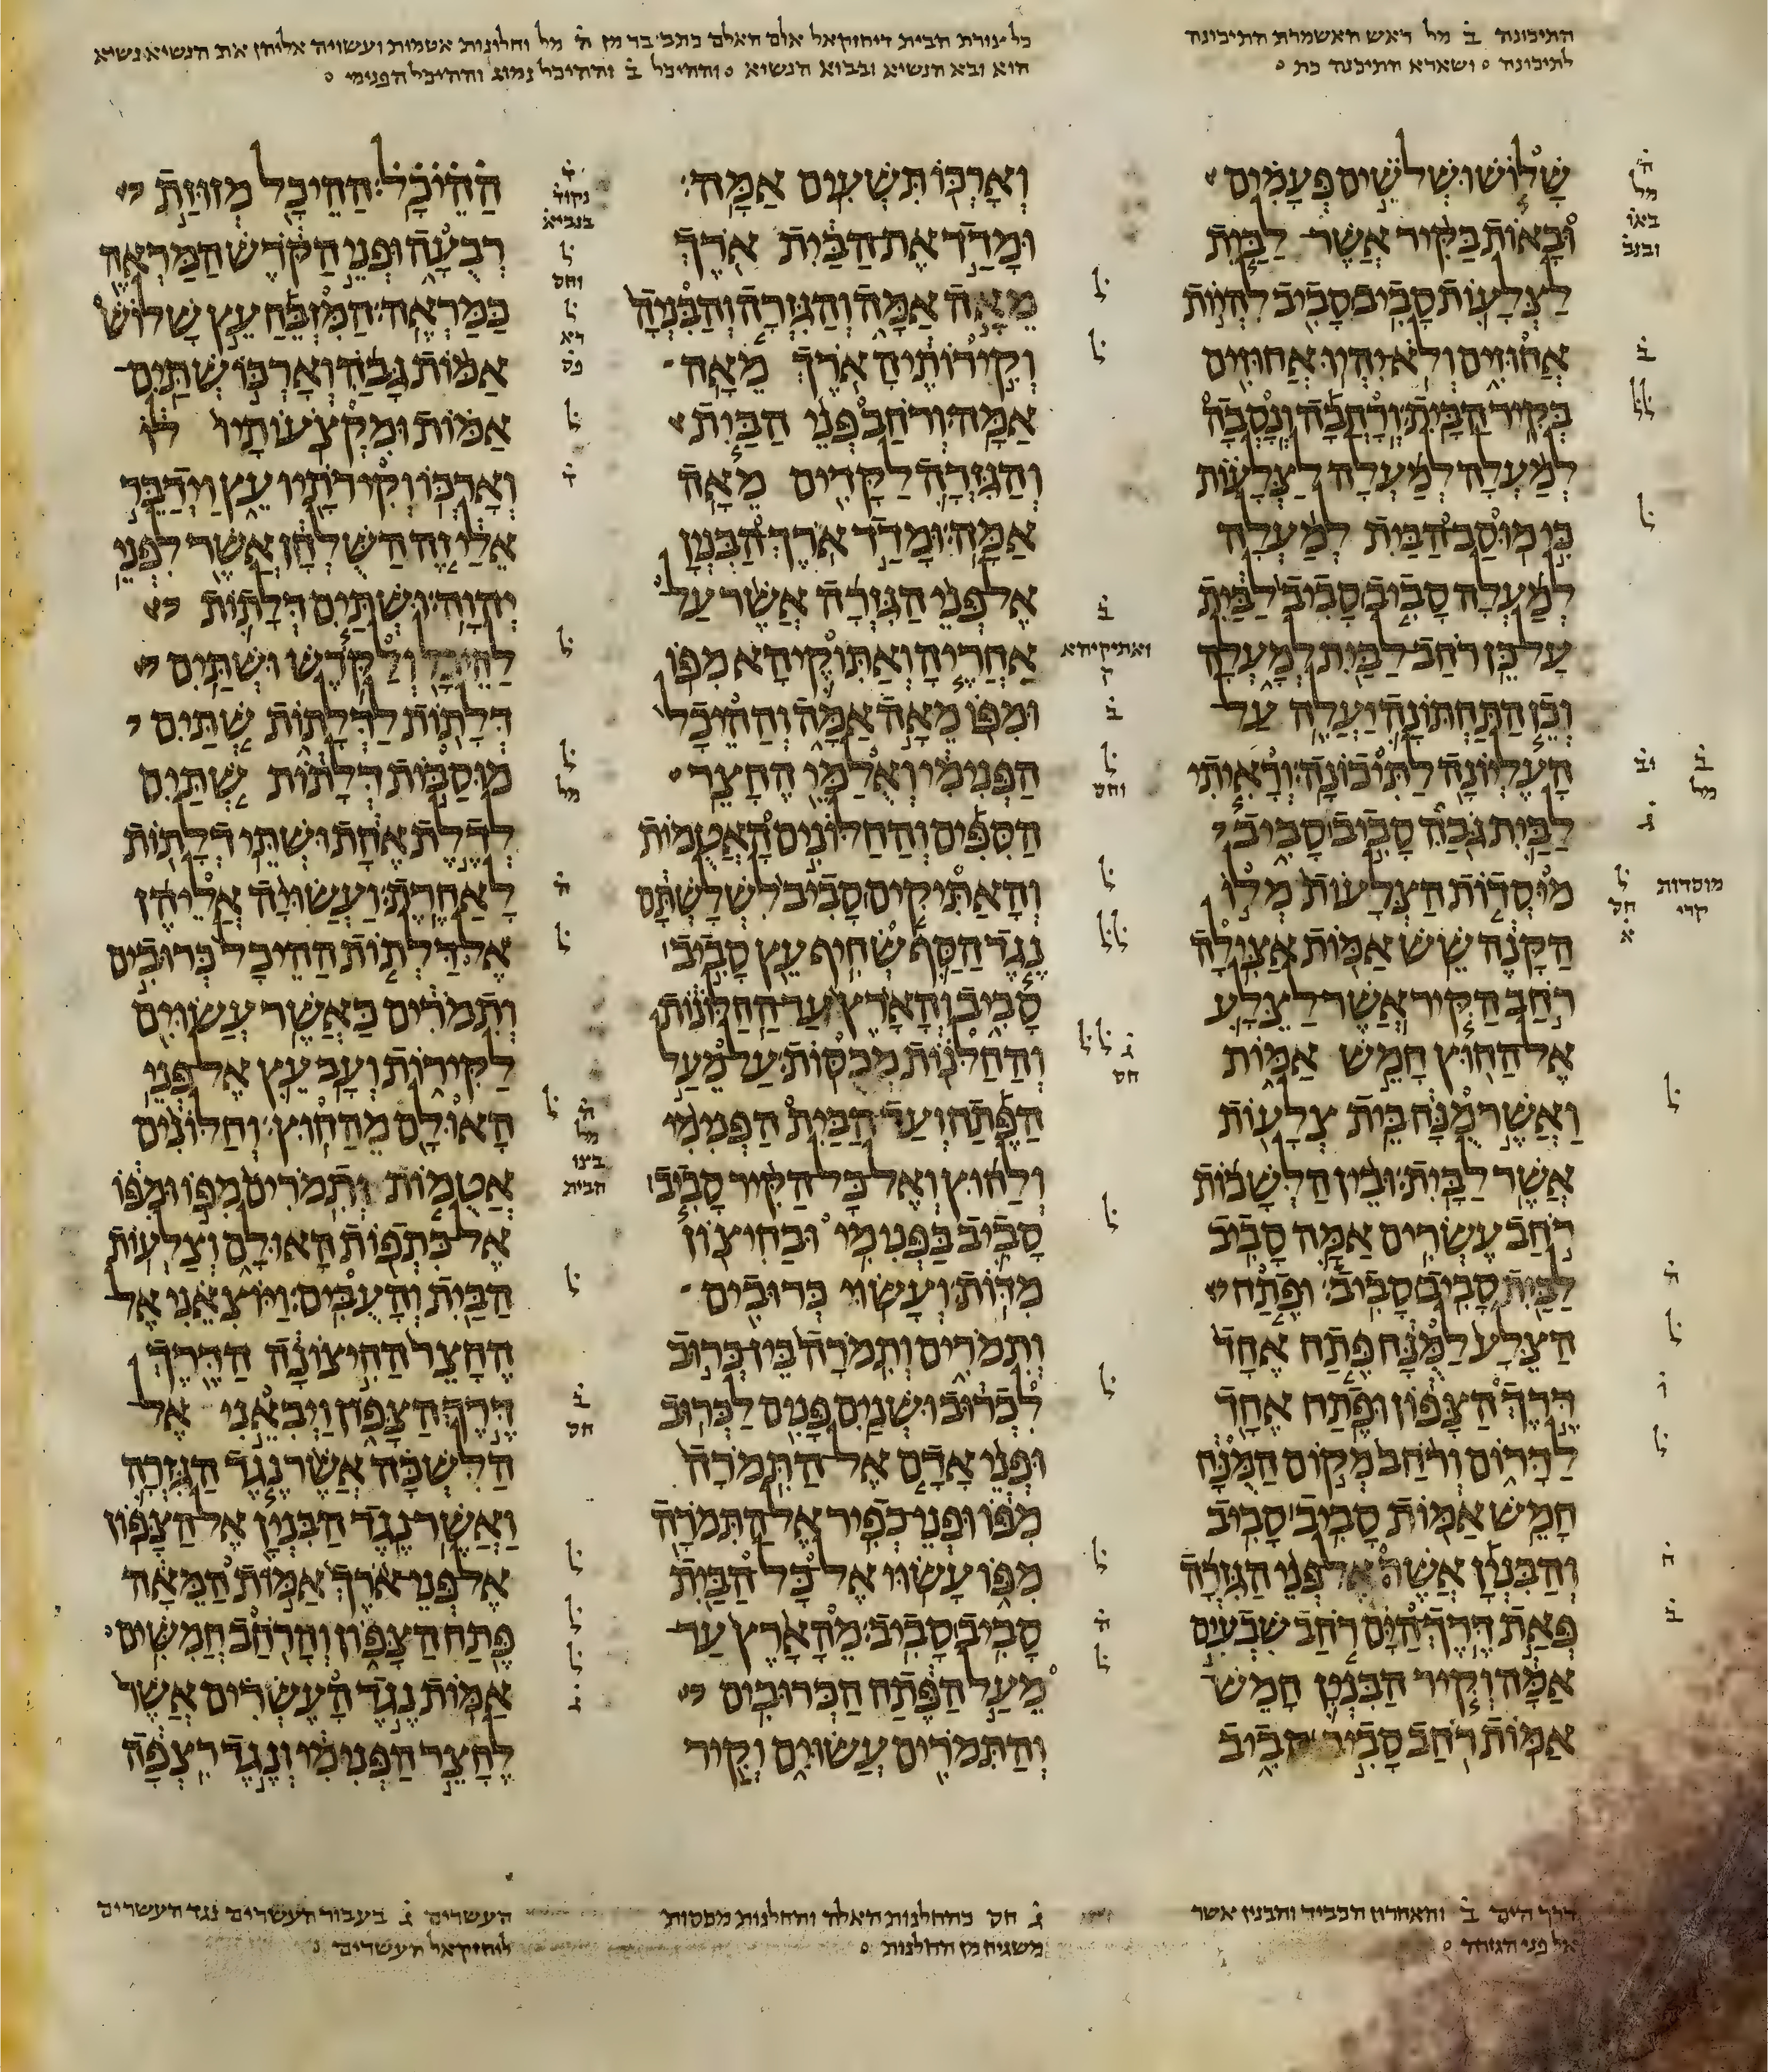 התיכונה ב̇ מל ראש האשמרת התיכונה
לתיכונה ׄ ושארא התיכנה כת ׄ
כל צורת הבית דיחזקאל אולם האלם כתב בר מן ה̇ מל וחלונות אטמות ועשויה אליהן את הנשיא נשיא
הוא ובא הנשיא ובבוא הנשיא ׄ וההיכל ב̇ וההיכל נמוג וההיכל הפנימי ׄ
שלוש ושלשים פעמים
ובאות בקיר אשר לבית
לצלעות סביב סביב להיות
אחוזים ולא יהיו אחוזים
בקיר הבית׃ ורחבה ונסבה
למעלה למעלה לצלעות
כי מוסב הבית למעלה
למעלה סביב סביב לבית
על כן רחב לבית למעלה
וכן התחתונה יעלה על
העליונה לתיכונה׃ וראיתי
לבית גבה סביב סביב
מוסדות הצלעות מלו
הקנה שש אמות אצילה
רחב הקיר אשר לצלע
אל החוץ חמש אמות
ואשר מנח בית צלעות
אשר לבית׃ ובין הלשכות
רחב עשרים אמה סביב
לבית סביב סביב׃ ופתח
הצלע למנח פתח אחד
דרך הצפון ופתח אחד
לדרום ורחב מקום המנח
חמש אמות סביב סביב
והבנין אשר אל פני הגזרה
פאת דרך הים רחב שבעים
אמה וקיר הבנין חמש
אמות רחב סביב סביב
וארכו תשעים אמה׃
ומדד את הבית ארך
מאה אמה והגזרה והבניה
וקירותיה ארך מאה
אמה׃ ורחב פני הבית
והגזרה לקדים מאה
אמה׃ ומדד ארך הבנין
אל פני הגזרה אשר על
אחריה ואתוקיהא מפו
ומפו מאה אמה וההיכל
הפנימי ואלמי החצר׃
הספים והחלונים האטמות
והאתיקים סביב לשלשתם
נגד הסף שחיף עץ סביב
סביב והארץ עד החלונות
והחלנות מכסות׃ על מעל
הפתח ועד הבית הפנימי
ולחוץ ואל כל הקיר סביב
סביב בפנימי ובחיצון
מדות׃ ועשוי כרובים
ותמרים ותמרה בין כרוב
לכרוב ושנים פנים לכרוב׃
ופני אדם אל התמרה
מפו ופני כפיר אל התמרה
מפו עשוי אל כל הבית
סביב סביב׃ מהארץ עד
מעל הפתח הכרובים
והתמרים עשוים וקיר
ההיכל׃ ההיכל מזוזת
רבעה ופני הקדש המראה
כמראה׃ המזבח עץ שלוש
אמות גבה וארכו שתים
אמות ומקצעותיו לו
וארכו וקירתיו עץ וידבר
אלי זה השלחן אשר לפני
יהוה׃ ושתים דלתות
להיכל ולקדש׃ ושתים
דלתות לדלתות שתים
מוסבות דלתות שתים
לדלת אחת ושתי דלתות
לאחרת׃ ועשויה אליהן
אל דלתות ההיכל כרובים
ותמרים כאשר עשוים
לקירות ועב עץ אל פני
האולם מהחוץ׃ וחלונים
אטמות ותמרים מפו ומפו
אל כתפות האולם וצלעות
הבית והעבים׃ ויוצאני אל
החצר החיצונה הדרך
דרך הצפון ויבאני אל
הלשכה אשר נגד הגזרה
ואשר נגד הבנין אל הצפון׃
אל פני ארך אמות המאה
פתח הצפון והרחב חמשים
אמות׃ נגד העשרים אשר
לחצר הפנימי ונגד רצפה
דרך הים ב̇ והאחרון הכביד והבנין אשר
אל פני הגזרה ׄ
ג̇ חס כהחלנות האלה והחלנות מכסות
משגיח מן החלנות ׄ
העשרים ג̇ בעבור העשרים נגד העשרים
ליחזקאל העשרים